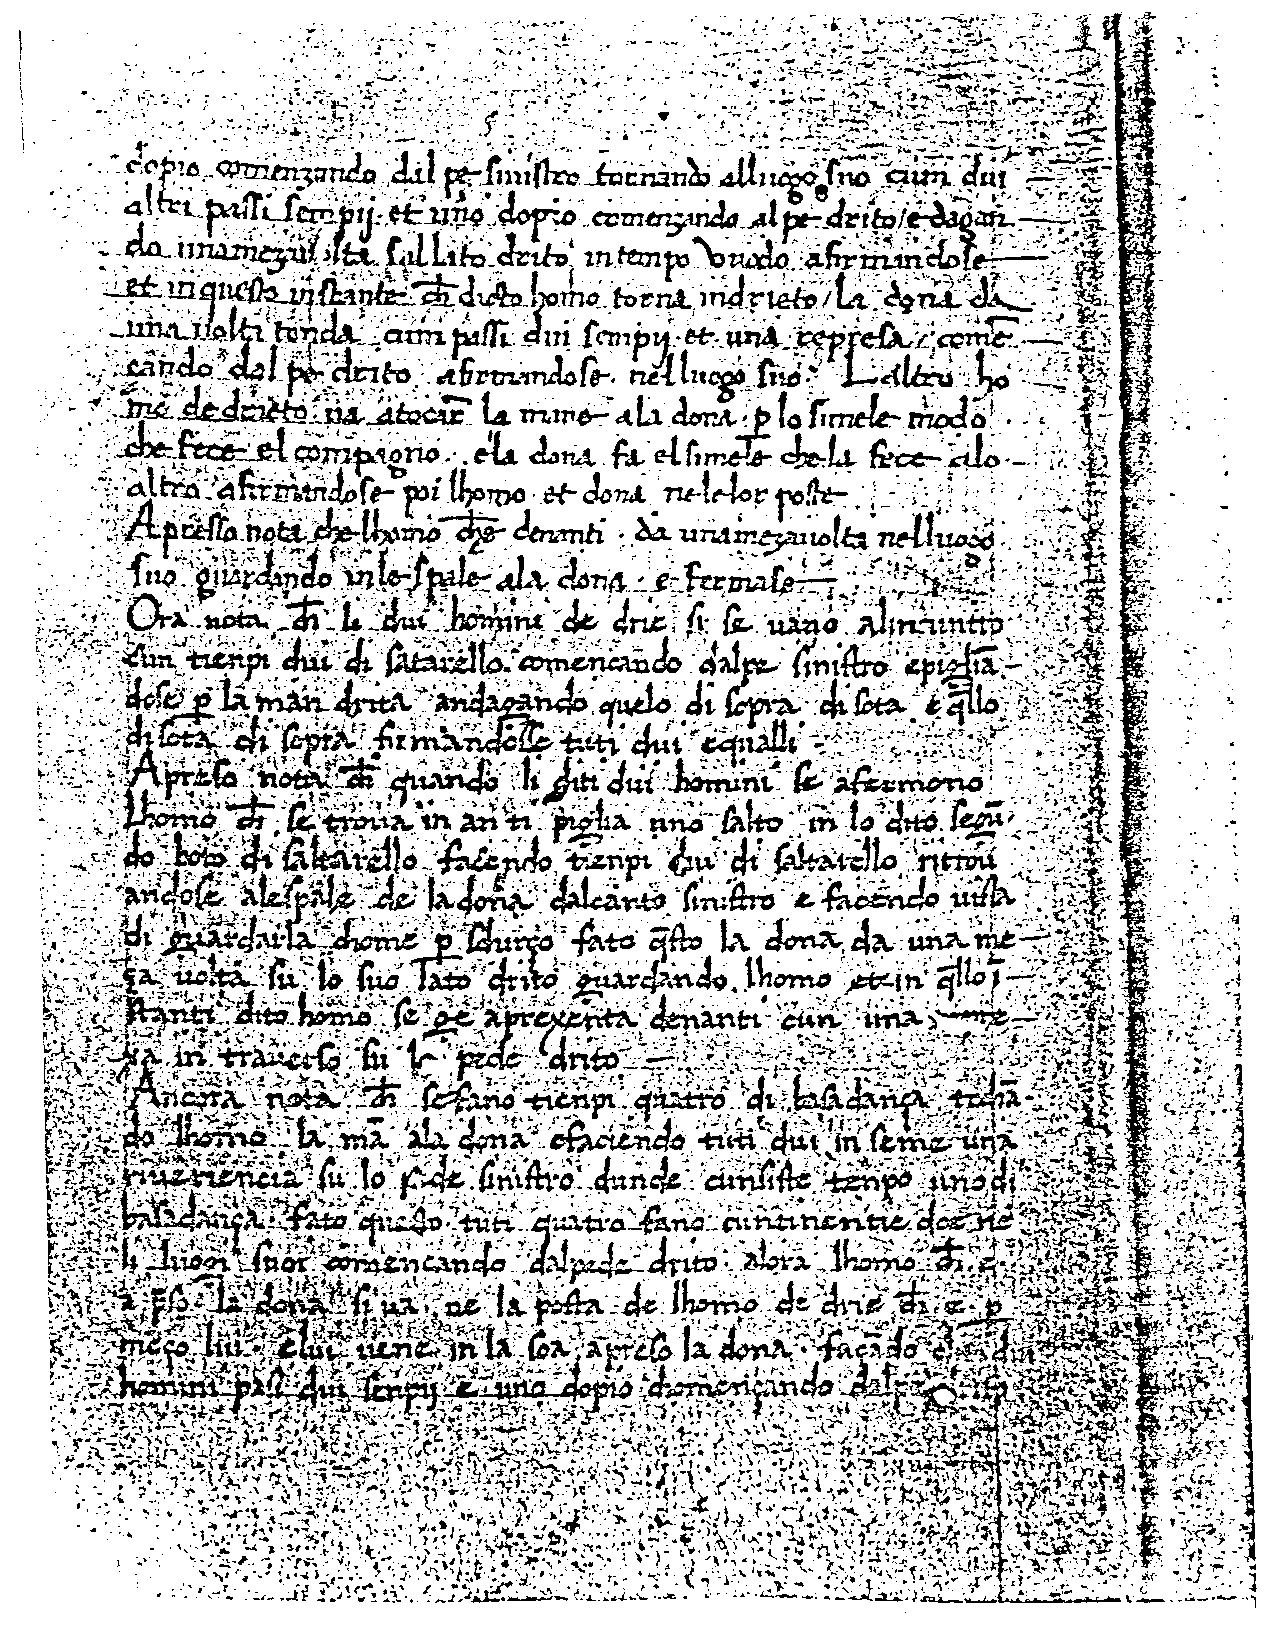 dopio comenzando dal pe sinistro tornando alluogo suo cum dui
altri passi sempij. et uno dopio comenzando al pe drito / e dagan
do una meza volta sullito drito in tempo vuodo afirmandose
et in questo instante ch̄ dicto homo torna indrieto / la dona da
una volta tonda cum passi dui sempij et una represa / come
cando dal pe drito afirmandose nelluogo suo. Laltro ho
mo de drieto va atocar la mano ala dona. p̱ lo simele modo
che fece el compagno. ela dona fa el simele che la fece alo
altro. afirmandose poi lhomo et dona ne le lor poste
Apresso nota che lhomo ch̄e denanti. da una meza volta nelluogo
suo guardando in le spale ala dona. e fermase
Ora nota. ch̄ li dui homini de drie si se vano alincuntro
cun tienpi dui di satarello. comencando dalpe sinistro epigliā
dose p̱ la man drita andagando quelo di sopra di sota e q̄llo
di sota di sopra firmandosse tuti dui equalli
Apreso nota ch̄ quando li diti dui homini se afermono
lhomo ch̄ se trova in anti piglia uno salto in lo dito segū
do boto di saltarello facendo tienpi dui di saltarello ritrou
andose alespale de la dona dalcanto sinistro e facendo vista
di guardarla chome p̱ fato q̄sto la dona da una me
ça volta su lo suo lato drito guardando lhomo et in q̄llo ī
stanti dito homo se ge aprexenta denanti cun una
xa in traverso su lo pede drito
Ancora nota ch̄ se fano tienpi quatro di basadança tochā
do lhomo la mā ala dona efaciendo tuti dui in seme una
riveriencia su lo pede sinistro dunde cunsiste tenpo uno di
basadança. fato questo tuti quatro fano cuntinentie doe ne
li luogi suoi comencando dalpede drito. alora lhomo ch̄. e.
a p̄so la dona si va. ne la posta de lhomo de drie ch̄. e. p̱
meço lui. elui vene in la soa apreso la dona. façādo dui
homini pasi dui senpij e uno dopio chomençando dalpe drito